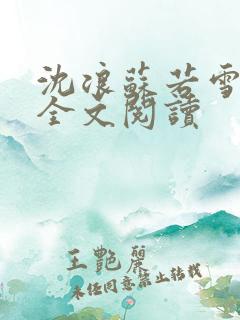 沈浪蘇若雪
全文閱讀
王艷麗
未經同意禁止轉載